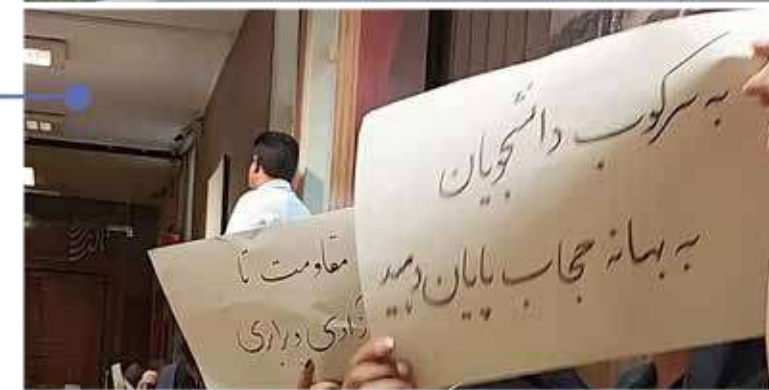 به سرکوب دانشجویان
به بهانه حجاب پایان دهید
مقاومت تا
زادی و برابری